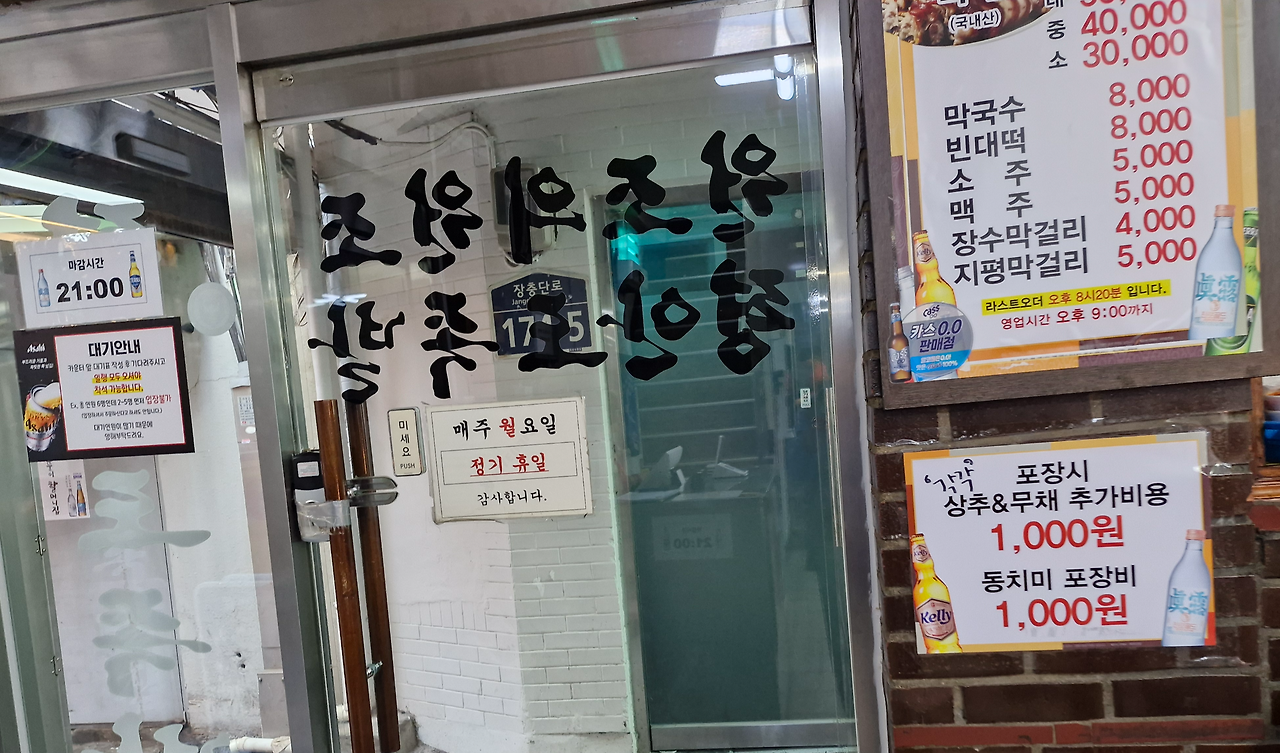 마감시간
21:00
Asahi
대기안내
카운터 앞 대기표 작성 후 기다려주시고
일행 모두 오셔야
착석 가능합니다.
Ex. 총 인원 6명인데 2~5명 먼저 입장불가
대기인원이 많기 때문에
양해부탁드려요.
원조의원조
평안도족발
장충단로
175
미세요
PUSH
매주 월요일
정기 휴일
감사합니다.
(국내산)
대
중 40,000
소 30,000
막국수 8,000
빈대떡 8,000
소 주 5,000
맥 주 5,000
장수막걸리 4,000
지평막걸리 5,000
라스트오더 오후 8시20분 입니다.
영업시간 오후 9:00까지
cass
카스 0.0
판매점
"각각" 포장시
상추&무채 추가비용
1,000원
동치미 포장비
1,000원
Kelly
眞露